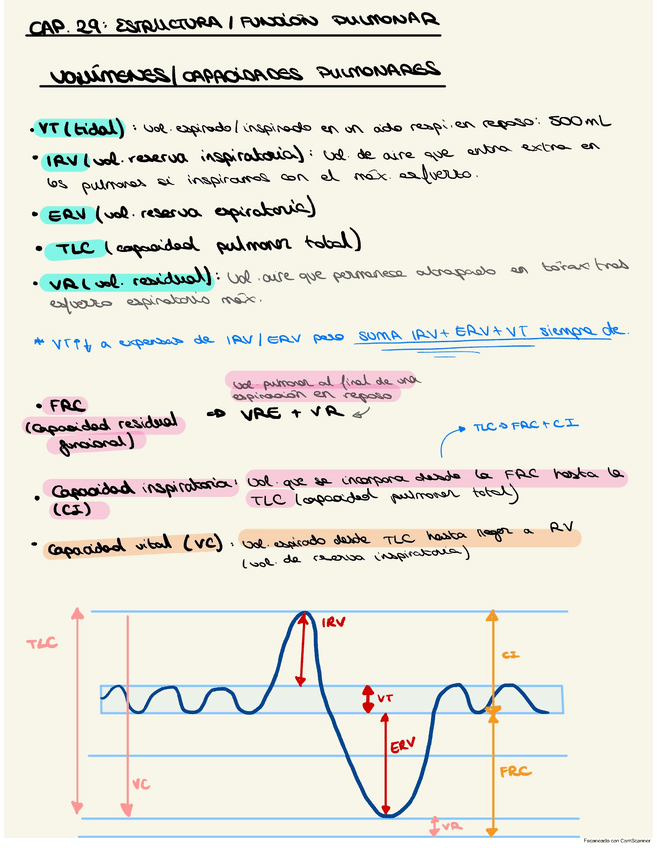 CAP. 29: ESTRUCTURA / FUNCIÓN PULMONAR
VOLÚMENES/CAPACIDADES PULMONARES
• VT (tidal): vol. espirado/inspirado en un ciclo respi. en reposo: 500mL
• IRV (vol. reserva inspiratoria): vol. de aire que entra extra en
los pulmones si inspiramos con el máx. esfuerzo.
• ERV (vol. reserva espiratoria)
• TLC (capacidad pulmonar total)
• VR (vol. residual): vol. aire que permanece atrapado en tórax tras
esfuerzo espiratorio máx.
* VT↑↓ a expensas de IRV/ERV pero SUMA IRV + ERV + VT siempre de.
vol. pulmonar al final de una
espiración en reposo
• FRC
(capacidad residual
funcional)
⇒ VRE + VR
TLC ⇒ FRC + CI
• Capacidad inspiratoria: vol. que se incorpora desde la FRC hasta la
(CI)
TLC (capacidad pulmonar total)
• Capacidad vital (VC): vol. espirado desde TLC hasta llegar a RV
(vol. de reserva inspiratoria)
IRV
TLC
CI
VT
ERV
FRC
VC
VR
Escaneado con CamScanner